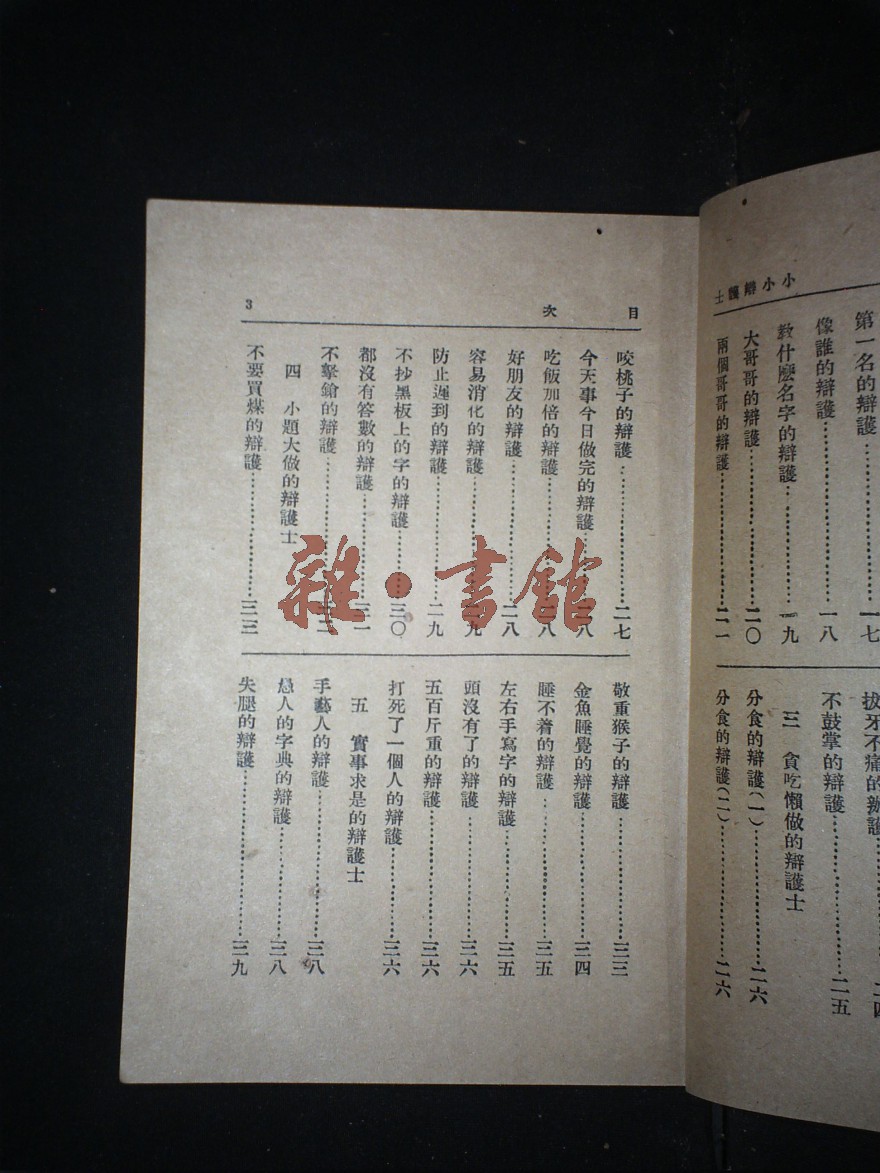 小小辯護士
第一名的辯護……一七
像誰的辯護……一八
教什麼名字的辯護……一九
大哥哥的辯護……二〇
兩個哥哥的辯護……二一
拔牙不痛的辯護……二四
不鼓掌的辯護……二五
三 貪吃懶做的辯護士
分食的辯護(一)……二六
分食的辯護(二)……二六
目次 3
咬桃子的辯護……二七
今天事今日做完的辯護……二八
吃飯加倍的辯護……二八
好朋友的辯護……二八
容易消化的辯護……二九
防止遲到的辯護……二九
不抄黑板上的字的辯護……三〇
都沒有答數的辯護……三一
不擊鎗的辯護……三二
四 小題大做的辯護士
不要買煤的辯護……三三
敬重猴子的辯護……三三
金魚睡覺的辯護……三四
睡不着的辯護……三五
左右手寫字的辯護……三五
頭沒有了的辯護……三六
五百斤重的辯護……三六
打死了一個人的辯護……三六
五 實事求是的辯護士
手藝人的辯護……三八
愚人的字典的辯護……三八
失腿的辯護……三九
雜·書館